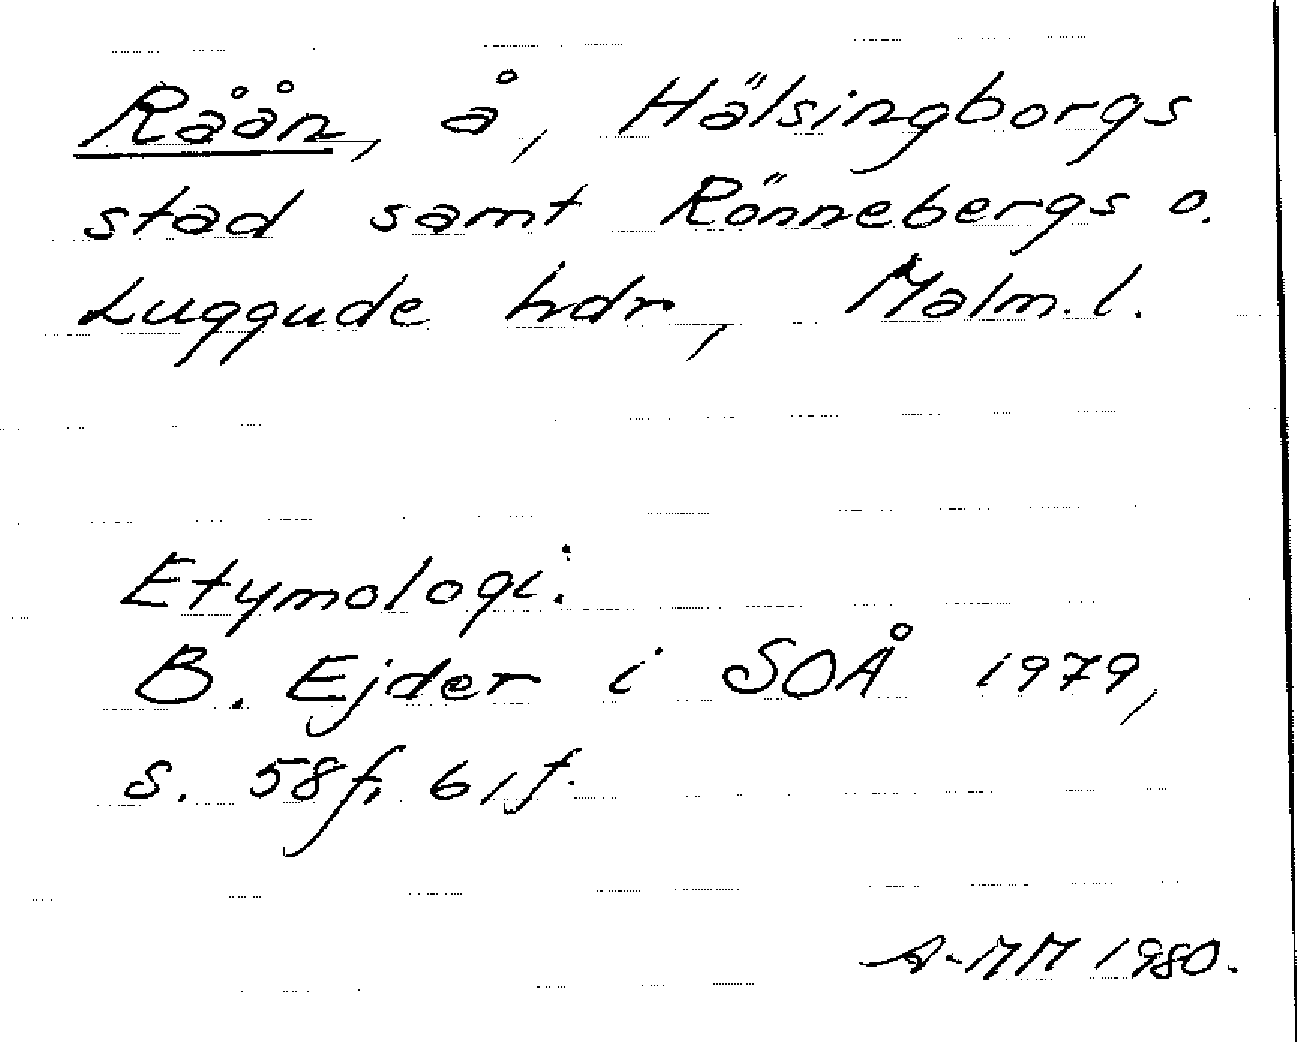 Råån, å, Hälsingborgs
stad samt Rönnebergs o.
Luggude hdr, Malm. l.
Etymologi:
B. Ejder i SOÅ 1979,
s. 58f, 61f.
A-MM 1980.